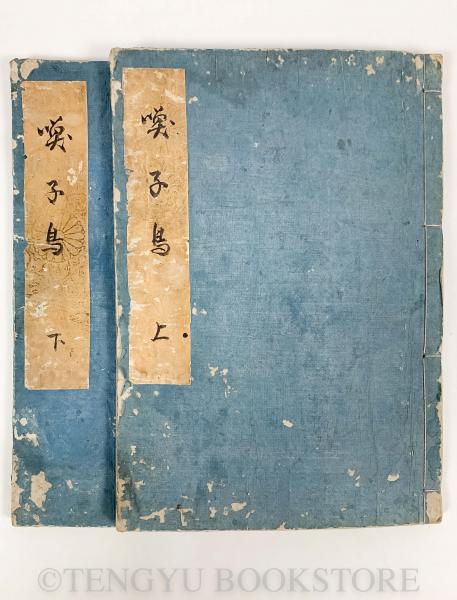 喚子鳥 上
喚子鳥 下
©TENGYU BOOKSTORE